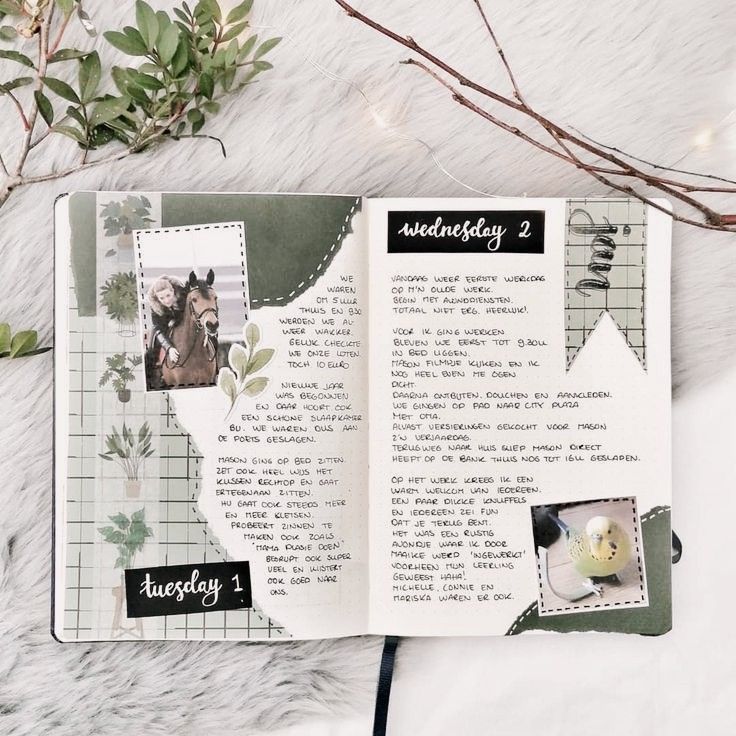 WE
WAREN
OM 5 UUR
THUIS EN 830
WERDEN WE AL
WEER WAKKER.
GELIJK CHECKTE
WE ONZE LOTEN.
TOCH 10 EURO
NIEUWE JAAR
WAS BEGONNEN
EN DAAR HOORT OOK
EEN SCHONE SLAAPKAMER
BIJ. WE WAREN DUS AAN
DE POETS GESLAGEN.
MASON GING OP BED ZITTEN.
ZET OOK HEEL WIJS HET
KUSSEN RECHTOP EN GAAT
ERTEGENAAN ZITTEN.
HIJ GAAT OOK STEEDS MEER
EN MEER KLETSEN.
PROBEERT ZINNEN TE
MAKEN OOK ZOALS
"MAMA PLASJE DOEN"
BEGRIJPT OOK SUPER
VEEL EN LUISTERT
OOK GOED NAAR
ONS.
tuesday 1
wednesday 2
jan
VANDAAG WEER EERSTE WERKDAG
OP M'N OUDE WERK.
BEGIN MET AVONDDIENSTEN.
TOTAAL NIET ERG, HEERLIJK!
VOOR IK GING WERKEN
BLEVEN WE EERST TOT 9.30U
IN BED LIGGEN.
MASON FILMPJE KIJKEN EN IK
NOG HEEL EVEN ME OGEN
DICHT.
DAARNA ONTBIJTEN, DOUCHEN EN AANKLEDEN.
WE GINGEN OP PAD NAAR CITY PLAZA
MET OMA.
ALVAST VERSIERINGEN GEKOCHT VOOR MASON
Z'N VERJAARDAG.
TERUGWEG NAAR HUIS SLIEP MASON DIRECT
HEEFT OP DE BANK THUIS NOG TOT 16U GESLAPEN.
OP HET WERK KREEG IK EEN
WARM WELKOM VAN IEDEREEN.
EEN PAAR DIKKE KNUFFELS
EN IEDEREEN ZEI FIJN
DAT JE TERUG BENT.
HET WAS EEN RUSTIG
AVONDJE WAAR IK DOOR
MAAIKE WERD 'INGEWERKT'
VOORHEEN MIJN LEERLING
GEWEEST HAHA!
MICHELLE, CONNIE EN
MARISKA WAREN ER OOK.